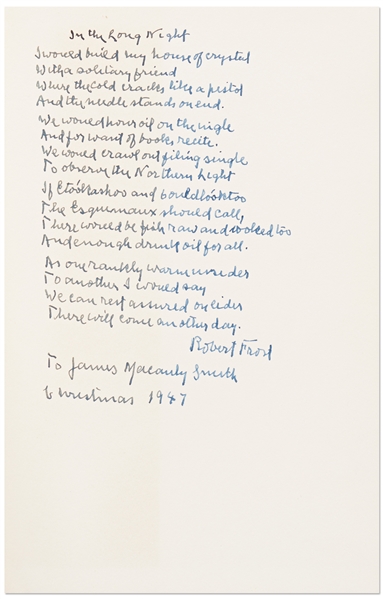 In the Long Night
I would build my house of crystal
With a solitary friend
Where the cold cracks like a pistol
And the needle stands on end.
We would pour oil on the ingle
And for want of books recite.
We would crawl out filing single
To observe the Northern Light
If Etookashoo and Couldlooktoo
The Esquimaux should call,
There would be fish raw and cooked too
And enough drink oil for all.
As one rankly warm insider
To another I would say
We can rest assured on eider
There will come another day.
Robert Frost
To James Macauly Smith
Christmas 1947